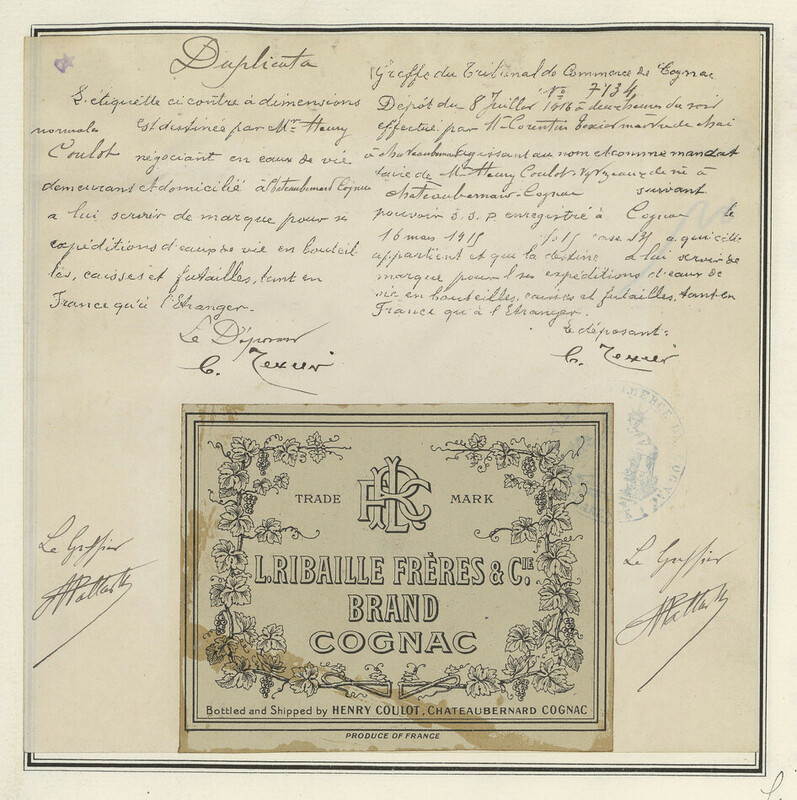 Duplicata
L'étiquette ci contre à dimensions
normale est destinée par Mr Henry
Coulot négociant en eaux de vie
demeurant et domicilié à Chateaubernard Cognac
a lui servir de marque pour ses
expéditions d'eaux de vie en bouteil-
les, caisses et futailles, tant en
France qu'à l'Etranger.
Le Déposant
C. Texier
Greffe du Tribunal de Commerce de Cognac
No 7134
Dépôt du 8 Juillet 1916 à deux heures du soir
effectué par Mr Corentin Texier maître de chai
à Chateaubernard agissant au nom et comme mandat
taire de Mr Henry Coulot eaux de vie à
Chateaubernard-Cognac suivant
pouvoir S.S.P. enregistré à Cognac le
16 mars 1915 case a qui elle
appartient et qui la destine à lui servir de
marque pour ses expéditions d'eaux de
vie en bouteilles, caisses et futailles, tant en
France qu'à l'Etranger.
Le déposant:
C. Texier
COMMERCE DE COGNAC
TRADE MARK
L. RIBAILLE FRÈRES & CIE.
BRAND
COGNAC
Bottled and Shipped by HENRY COULOT, CHATEAUBERNARD COGNAC
PRODUCE OF FRANCE
Le Greffier
Le Greffier